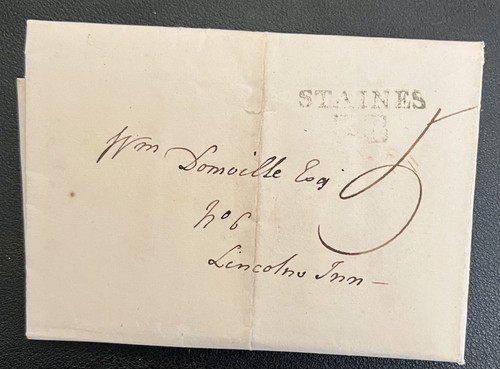 STAINES
5
Wm Domville Esqr
No 6
Lincolns Inn –